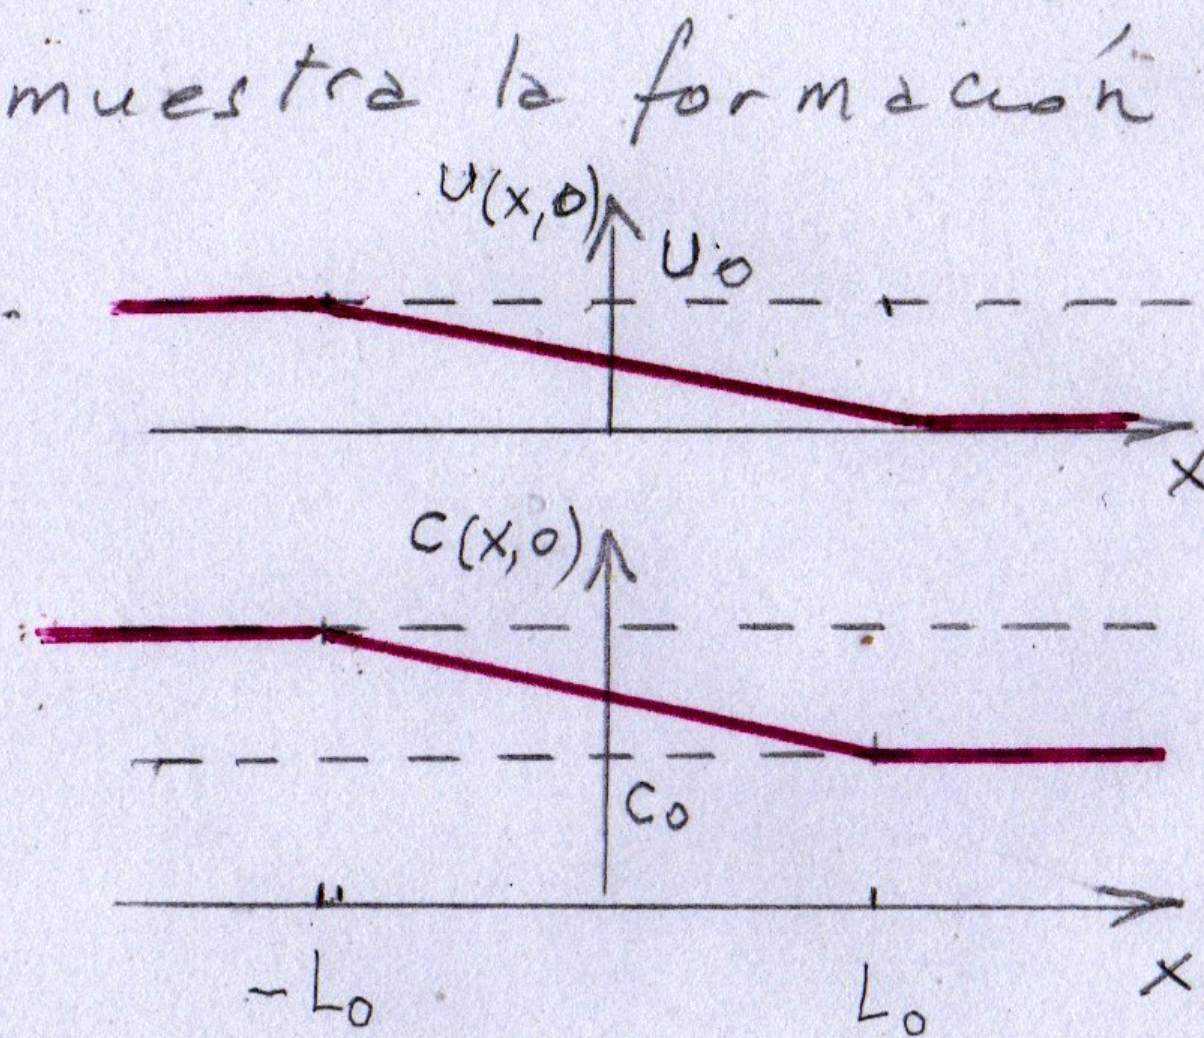 muestra la formación
U(x,0)
U₀
x
C(x,0)
C₀
-L₀
L₀
x